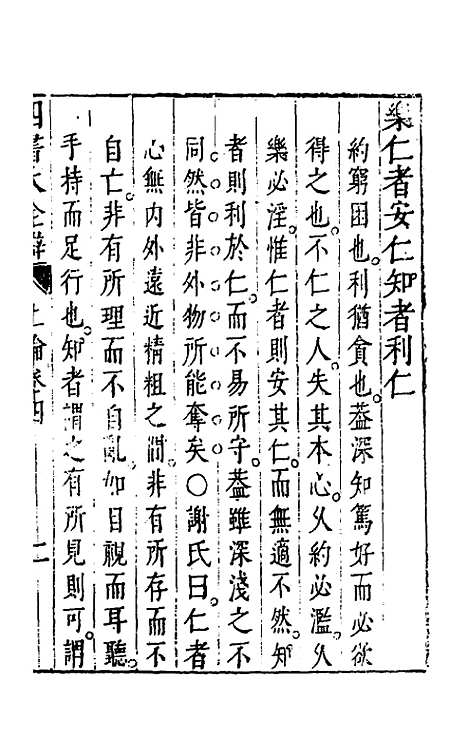 樂仁者安仁知者利仁
約窮困也利猶貪也葢深知篤好而必欲
得之也不仁之人失其本心乆約必濫乆
樂必淫惟仁者則安其仁而無適不然知
者則利於仁而不易所守葢雖深淺之不
同然皆非外物所能奪矣〇謝氏曰仁者
心無内外遠近精粗之間非有所存而不
自亡非有所理而不自亂如目視而耳聽
手持而足行也知者謂之有所見則可謂
四書大全辯 上論卷四